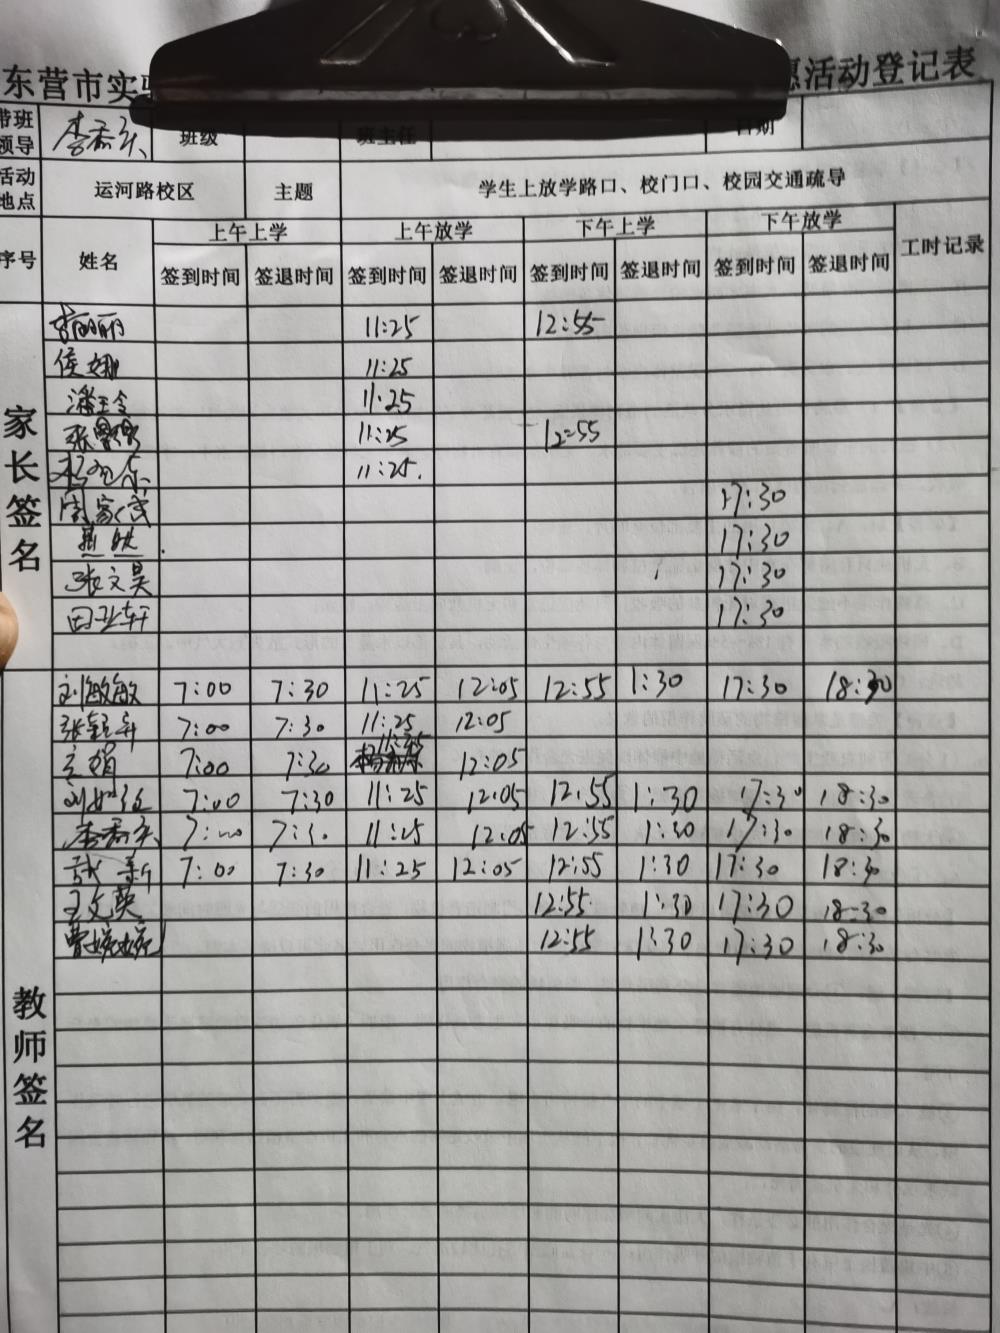 东营市实 愿活动登记表
带班领导 李 班级 班主任 日期
活动地点 运河路校区 主题 学生上放学路口、校门口、校园交通疏导
序号 姓名 上午上学 上午放学 下午上学 下午放学 工时记录
签到时间 签退时间 签到时间 签退时间 签到时间 签退时间 签到时间 签退时间
家长签名
丽丽 11:25 12:55
侯娜 11:25
潘玉令 11:25
张 11:25 12:55
杨 11:25.
周家 17:30
17:30
张文昊 17:30
田 轩 17:30
教师签名
刘敏敏 7:00 7:30 11:25 12:05 12:55 1:30 17:30 18:30
张 7:00 7:30 11:25 12:05
7:00 7:30 11:25 12:05
刘 7:00 7:30 11:25 12:05 12:55 1:30 17:30 18:30
李 7:00 7:30 11:25 12:05 12:55 1:30 17:30 18:30
新 7:00 7:30 11:25 12:05 12:55 1:30 17:30 18:30
王文英 12:55 1:30 17:30 18:30
曹婉婉 12:55 1:30 17:30 18:30